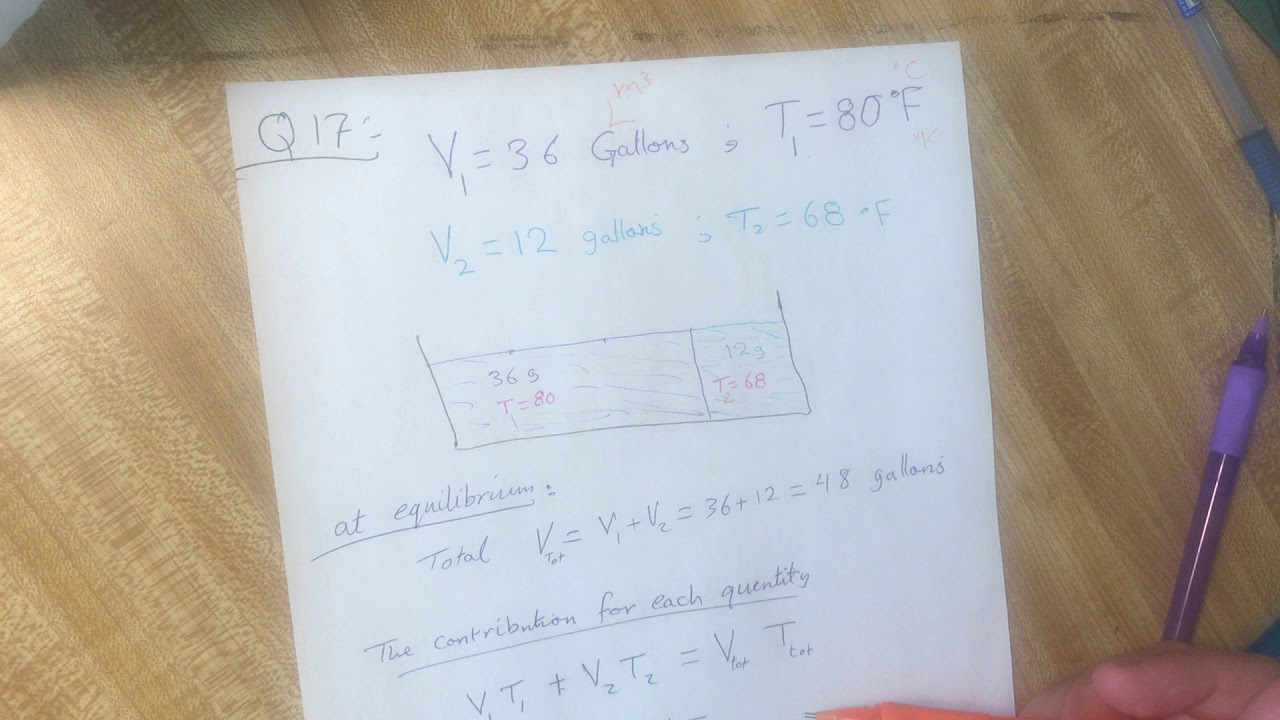 m³
L
°C
Q 17:-
V₁ = 36 Gallons ; T₁ = 80 °F
°K
V₂ = 12 gallons ; T₂ = 68 °F
36 g
T₁ = 80
12 g
T₂ = 68
at equilibrium:
Total V_Tot = V₁ + V₂ = 36 + 12 = 48 gallons
The contribution for each quentity
V₁ T₁ + V₂ T₂ = V_tot T_tot